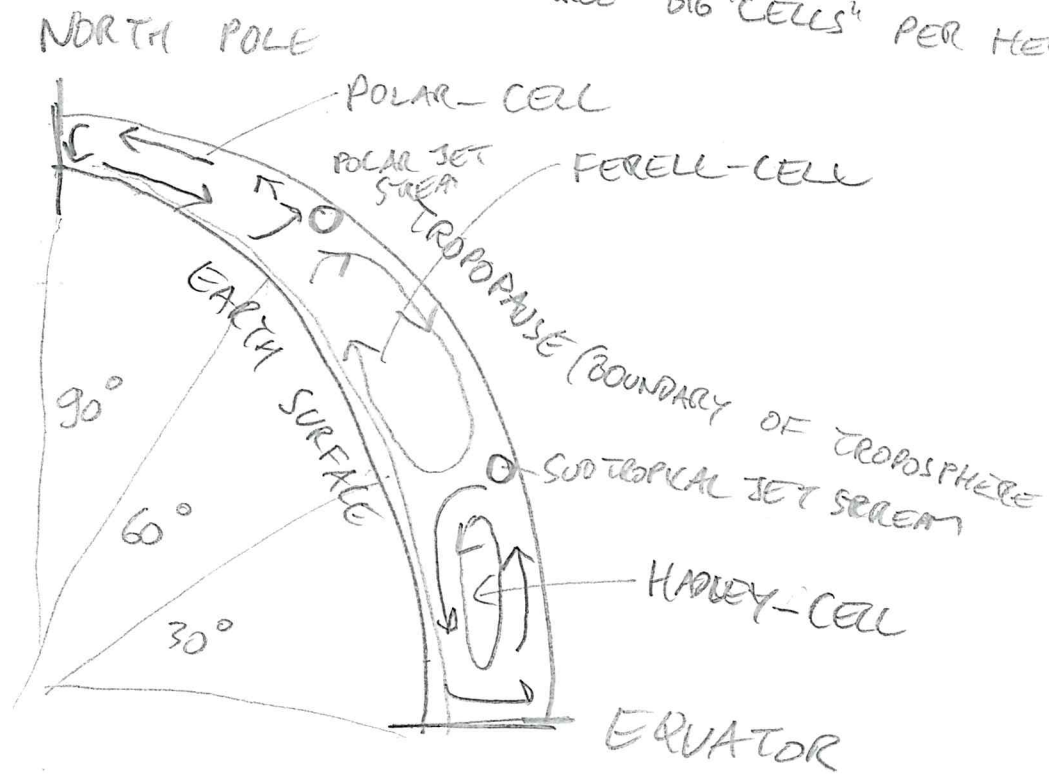 BIG "CELLS" PER HE
NORTH POLE
POLAR-CELL
POLAR JET
STREAM
FERELL-CELL
TROPOPAUSE (BOUNDARY OF TROPOSPHERE
EARTH SURFACE
90°
60°
30°
SUBTROPICAL JET STREAM
HADLEY-CELL
EQUATOR